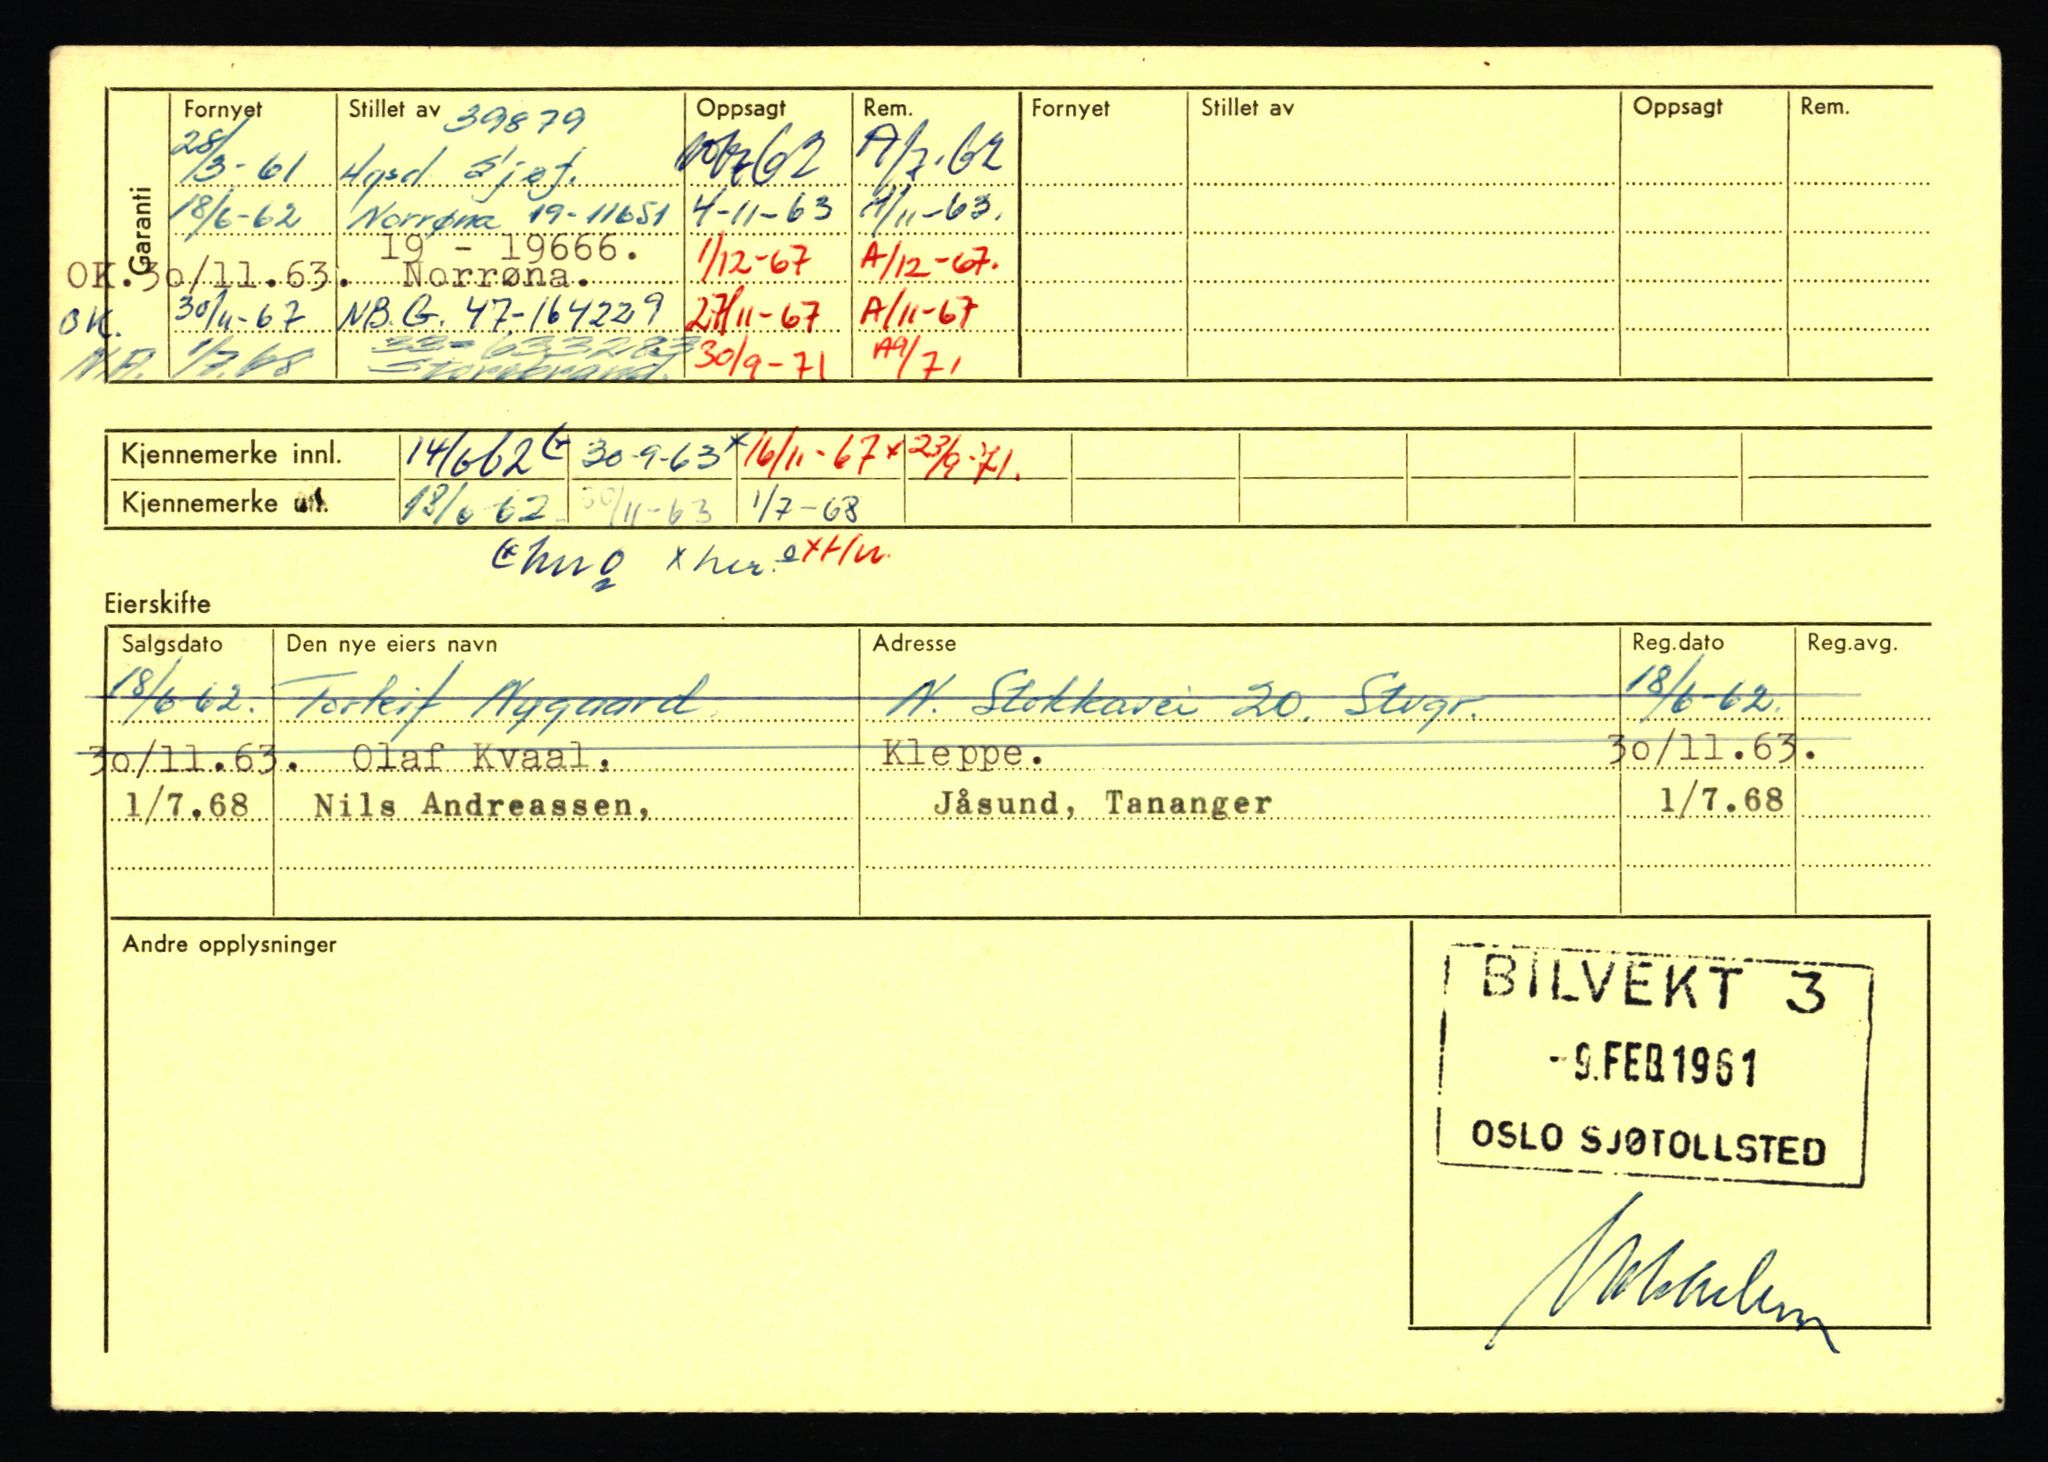 Garanti
Fornyet Stillet av 39879 Oppsagt Rem. Fornyet Stillet av Oppsagt Rem.
28/3-61 Hgsd Sjøf. 62 A/7.62
18/6-62 Norrøna 19-11651 4-11-63 A/11-63.
19 - 19666.
OK. 30/11.63. Norrøna. 1/12-67 A/12-67.
OK. 30/11-67 N.B.G. 47-164229 27/11-67 A/11-67
33-633283
N.A. 1/7.68 Storebrand. 30/9-71 A9/71
Kjennemerke innl. 14/6 62 (x 30-9-63 x 16/11-67 x 23/9-71.
Kjennemerke utl. 18/6-62 30/11-63 1/7-68
x
Eierskifte
Salgsdato Den nye eiers navn Adresse Reg.dato Reg.avg.
18/6-62. Torleif Nygaard N. Stokkavei 20. Stvgr. 18/6-62.
30/11.63. Olaf Kvaal. Kleppe. 30/11.63.
1/7.68 Nils Andreassen, Jåsund, Tananger 1/7.68
Andre opplysninger
BILVEKT 3
-9.FEB.1961
OSLO SJØTOLLSTED